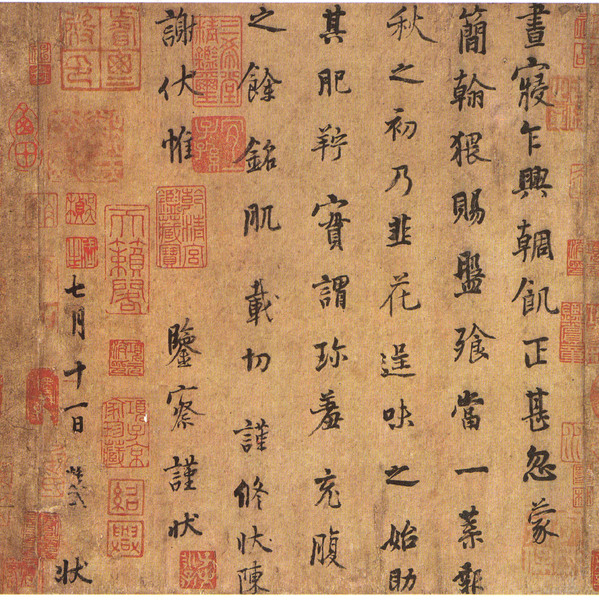 晝寢乍興輖飢正甚忽蒙
簡翰猥賜盤飧當一葉報
秋之初乃韭花逞味之始助
其肥羜實謂珍羞充腹
之餘銘肌載切謹修狀陳
謝伏惟 鑒察謹狀
七月十一日 狀
三希堂精鑑璽
宜子孫
乾清宮鑑藏寶
天籟閣
項子京家珍藏
紹興